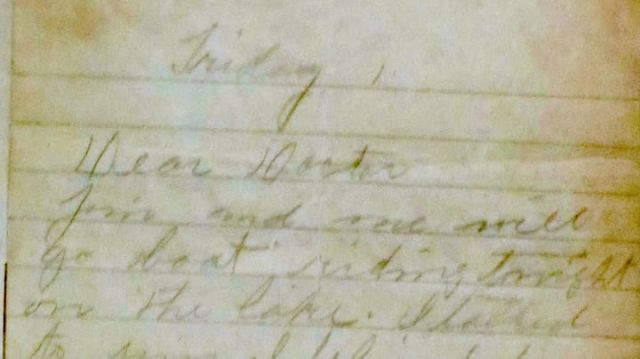 Friday
Dear Doctor
Jim and me will
go boat riding tonight
on the lake. I talked
to